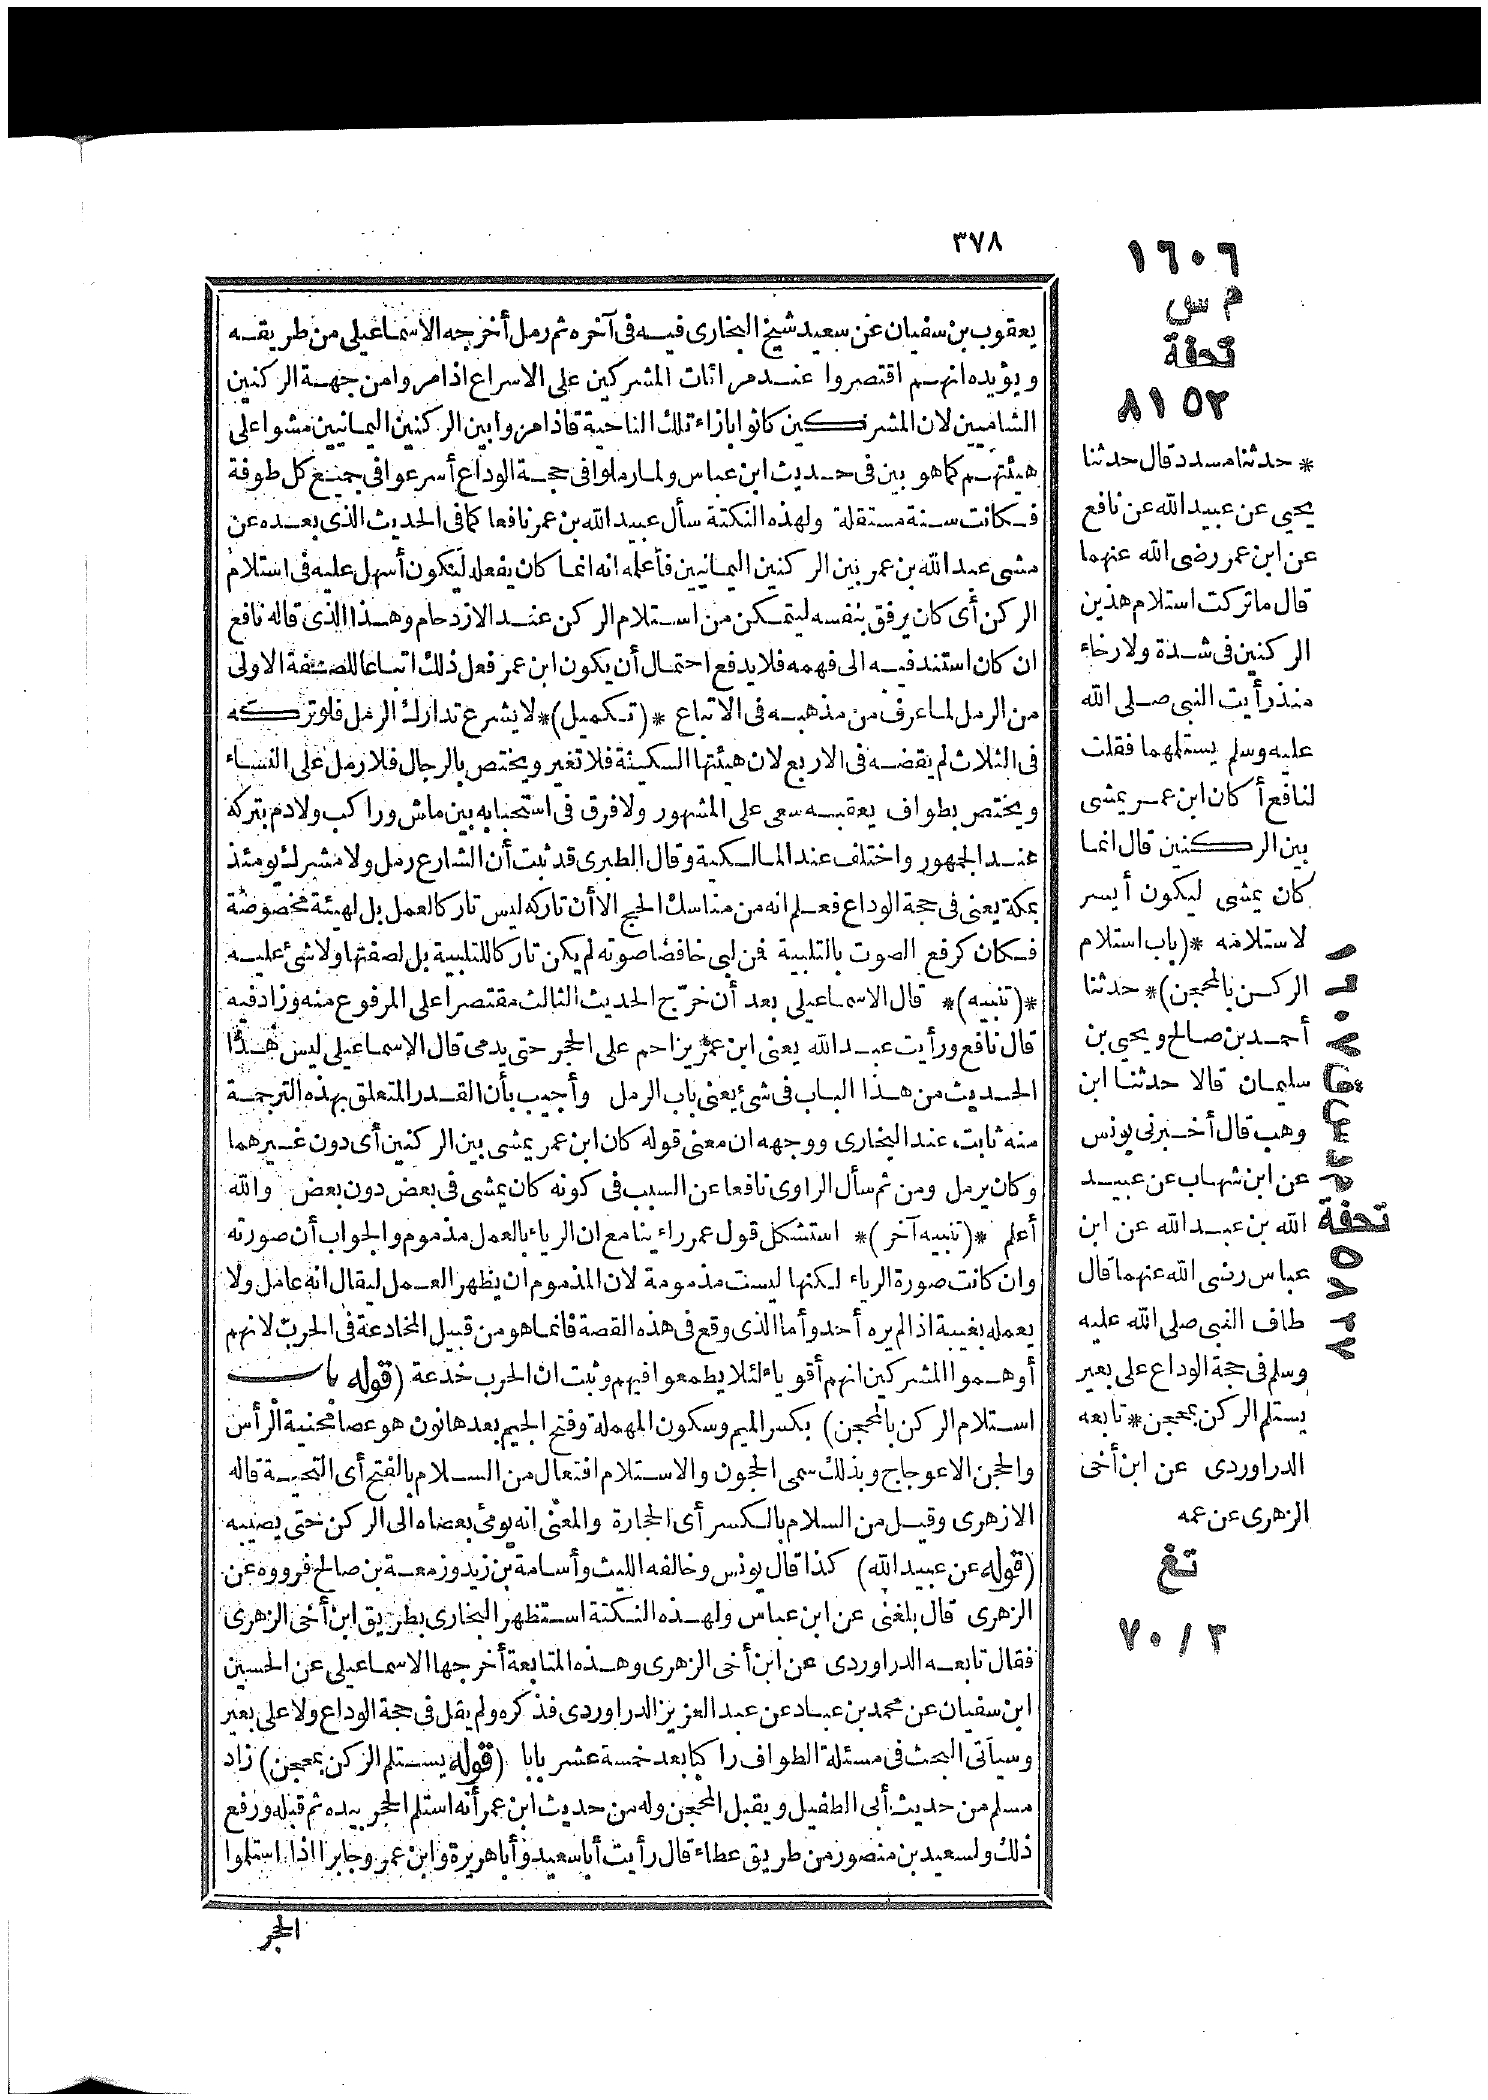 ٣٧٨
يعقوب بن سفيان عن سعيد شيخ البخارى فيه فى آخره ثم رمل أخرجه الاسماعيلى من طريقه
ويؤيده انهم اقتصروا عند مراآت المشركين على الاسراع اذا مروا من جهة الركنين
الشاميين لان المشركين كانوا بازاء تلك الناحية فاذا مروا بين الركنين اليمانيين مشوا على
هيئتهم كما هو بين فى حديث ابن عباس ولما رملوا فى حجة الوداع أسرعوا فى جميع كل طوفة
فكانت سنة مستقلة ولهذه النكتة سأل عبيد الله بن عمر نافعا كما فى الحديث الذى بعده عن
مشى عبد الله بن عمر بين الركنين اليمانيين فأعلمه انه انما كان يفعله ليكون أسهل عليه فى استلام
الركن أى كان يرفق بنفسه ليتمكن من استلام الركن عند الازدحام وهذا الذى قاله نافع
ان كان استند فيه الى فهمه فلا يدفع احتمال أن يكون ابن عمر فعل ذلك اتباعا للصفة الاولى
من الرمل لما عرف من مذهبه فى الاتباع *(تكميل)* لا يشرع تدارك الرمل فلو تركه
فى الثلاث لم يقضه فى الاربع لان هيئتها السكينة فلا تغير ويختص بالرجال فلا رمل على النساء
ويختص بطواف يعقبه سعى على المشهور ولا فرق فى استحبابه بين ماش وراكب ولا دم بتركه
عند الجمهور واختلف عند المالكية وقال الطبرى قد ثبت أن الشارع رمل ولا مشرك يومئذ
بمكة يعنى فى حجة الوداع فعلم انه من مناسك الحج الا أن تاركه ليس تاركا لعمل بل لهيئة مخصوصة
فكان كرفع الصوت بالتلبية فمن لبى خافضا صوته لم يكن تاركا للتلبية بل لصفتها ولا شئ عليه
*(تنبيه)* قال الاسماعيلى بعد أن خرّج الحديث الثالث مقتصرا على المرفوع منه وزاد فيه
قال نافع ورأيت عبد الله يعنى ابن عمر يزاحم على الحجر حتى يدمى قال الاسماعيلى ليس هذا
الحديث من هذا الباب فى شئ يعنى باب الرمل وأجيب بأن القدر المتعلق بهذه الترجمة
منه ثابت عند البخارى ووجهه ان معنى قوله كان ابن عمر يمشى بين الركنين أى دون غيرهما
وكان يرمل ومن ثم سأل الراوى نافعا عن السبب فى كونه كان يمشى فى بعض دون بعض والله
أعلم *(تنبيه آخر)* استشكل قول عمر راءينا مع ان الرياء بالعمل مذموم والجواب أن صورته
وان كانت صورة الرياء لكنها ليست مذمومة لان المذموم ان يظهر العمل ليقال انه عامل ولا
يعمله بغيبة اذا لم يره أحد وأما الذى وقع فى هذه القصة فانما هو من قبيل المخادعة فى الحرب لانهم
أوهموا المشركين انهم أقوياء لئلا يطمعوا فيهم وثبت ان الحرب خدعة (قوله باب
استلام الركن بالمحجن) بكسر الميم وسكون المهملة وفتح الجيم بعدها نون هو عصا محنية الرأس
والحجن الاعوجاج وبذلك سمى الحجون والاستلام افتعال من السلام بالفتح أى التحية قاله
الازهرى وقيل من السلام بالكسر أى الحجارة والمعنى انه يومئ بعصاه الى الركن حتى يصيبه
(قوله عن عبيد الله) كذا قال يونس وخالفه الليث وأسامة بن زيد وزمعة بن صالح فرووه عن
الزهرى قال بلغنى عن ابن عباس ولهذه النكتة استظهر البخارى بطريق ابن أخى الزهرى
فقال تابعه الدراوردى عن ابن أخى الزهرى وهذه المتابعة أخرجها الاسماعيلى عن الحسين
ابن سفيان عن محمد بن عباد عن عبد العزيز الدراوردى فذكره ولم يقل فى حجة الوداع ولا على بعير
وسيأتى البحث فى مسئلة الطواف راكبا بعد خمسة عشر بابا (قوله يستلم الركن بمحجن) زاد
مسلم من حديث أبى الطفيل ويقبل المحجن وله من حديث ابن عمر أنه استلم الحجر بيده ثم قبله ورفع
ذلك ولسعيد بن منصور من طريق عطاء قال رأيت أبا سعيد وأبا هريرة وابن عمر وجابرا اذا استلموا
الحجر
١٦٠٦
م س
تحفة
٨١٥٢
* حدثنا مسدد قال حدثنا
يحيى عن عبيد الله عن نافع
عن ابن عمر رضى الله عنهما
قال ما تركت استلام هذين
الركنين فى شدة ولا رخاء
منذ رأيت النبى صلى الله
عليه وسلم يستلمهما فقلت
لنافع أكان ابن عمر يمشى
بين الركنين قال انما
كان يمشى ليكون أيسر
لاستلامه *(باب استلام
الركن بالمحجن)* حدثنا
أحمد بن صالح ويحيى بن
سليمان قالا حدثنا ابن
وهب قال أخبرنى يونس
عن ابن شهاب عن عبيد
الله بن عبد الله عن ابن
عباس رضى الله عنهما قال
طاف النبى صلى الله عليه
وسلم فى حجة الوداع على بعير
يستلم الركن بمحجن * تابعه
الدراوردى عن ابن أخى
الزهرى عن عمه
تغ
٧٠/٣
١٦٠٧
م د س ق
تحفة
٥٨٣٧